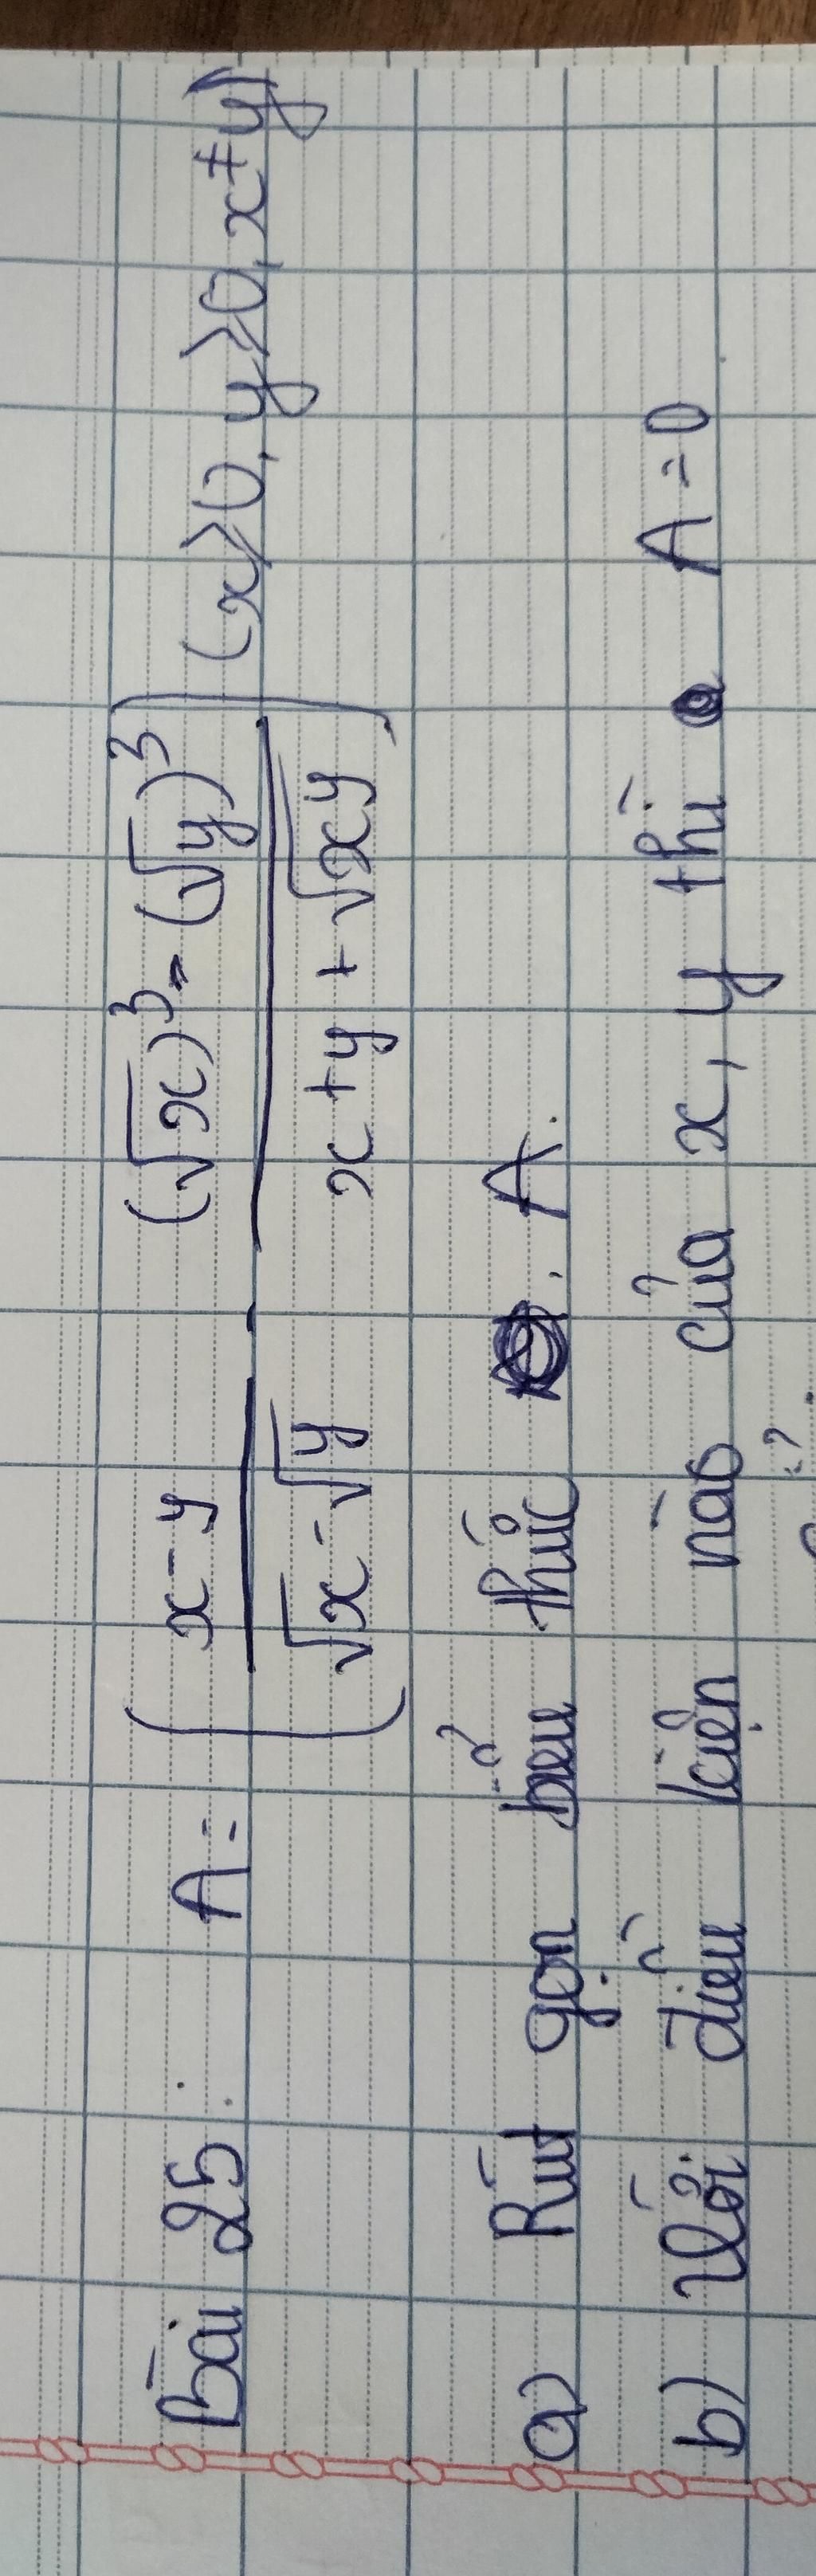 Bài 25. A = ( (x-y)/(√x-√y) - ((√x)³-(√y)³)/(x+y+√xy) ) (x≥0, y≥0, x≠y)
a) Rút gọn biểu thức A.
b) Với điều kiện nào của x, y thì A=0